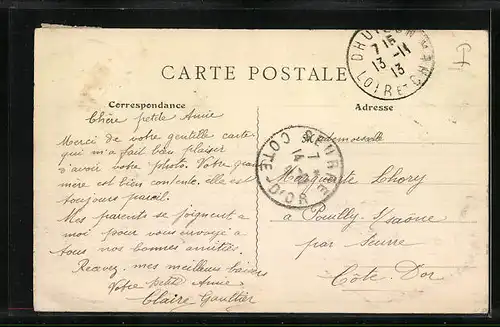 DHUIZON
7 15
13 -11
13
LOIR-ET-CHER
CARTE POSTALE
Correspondance
Adresse
Chère petite Amie
Merci de votre gentille carte
qui m'a fait bien plaisir
d'avoir votre photo. Votre gran
mère est bien contente, elle est
toujours pareil.
Mes parents se joignent a
moi pour vous envoyé a
tous nos bonnes amitiés.
Recevez mes meilleurs baisers
Votre petite Amie
Claire Gauthier
SEURRE
7
14
COTE-D'OR
Mademoiselle
Marguerite Lhory
a Pouilly s/saône
par seurre
Côte d'or